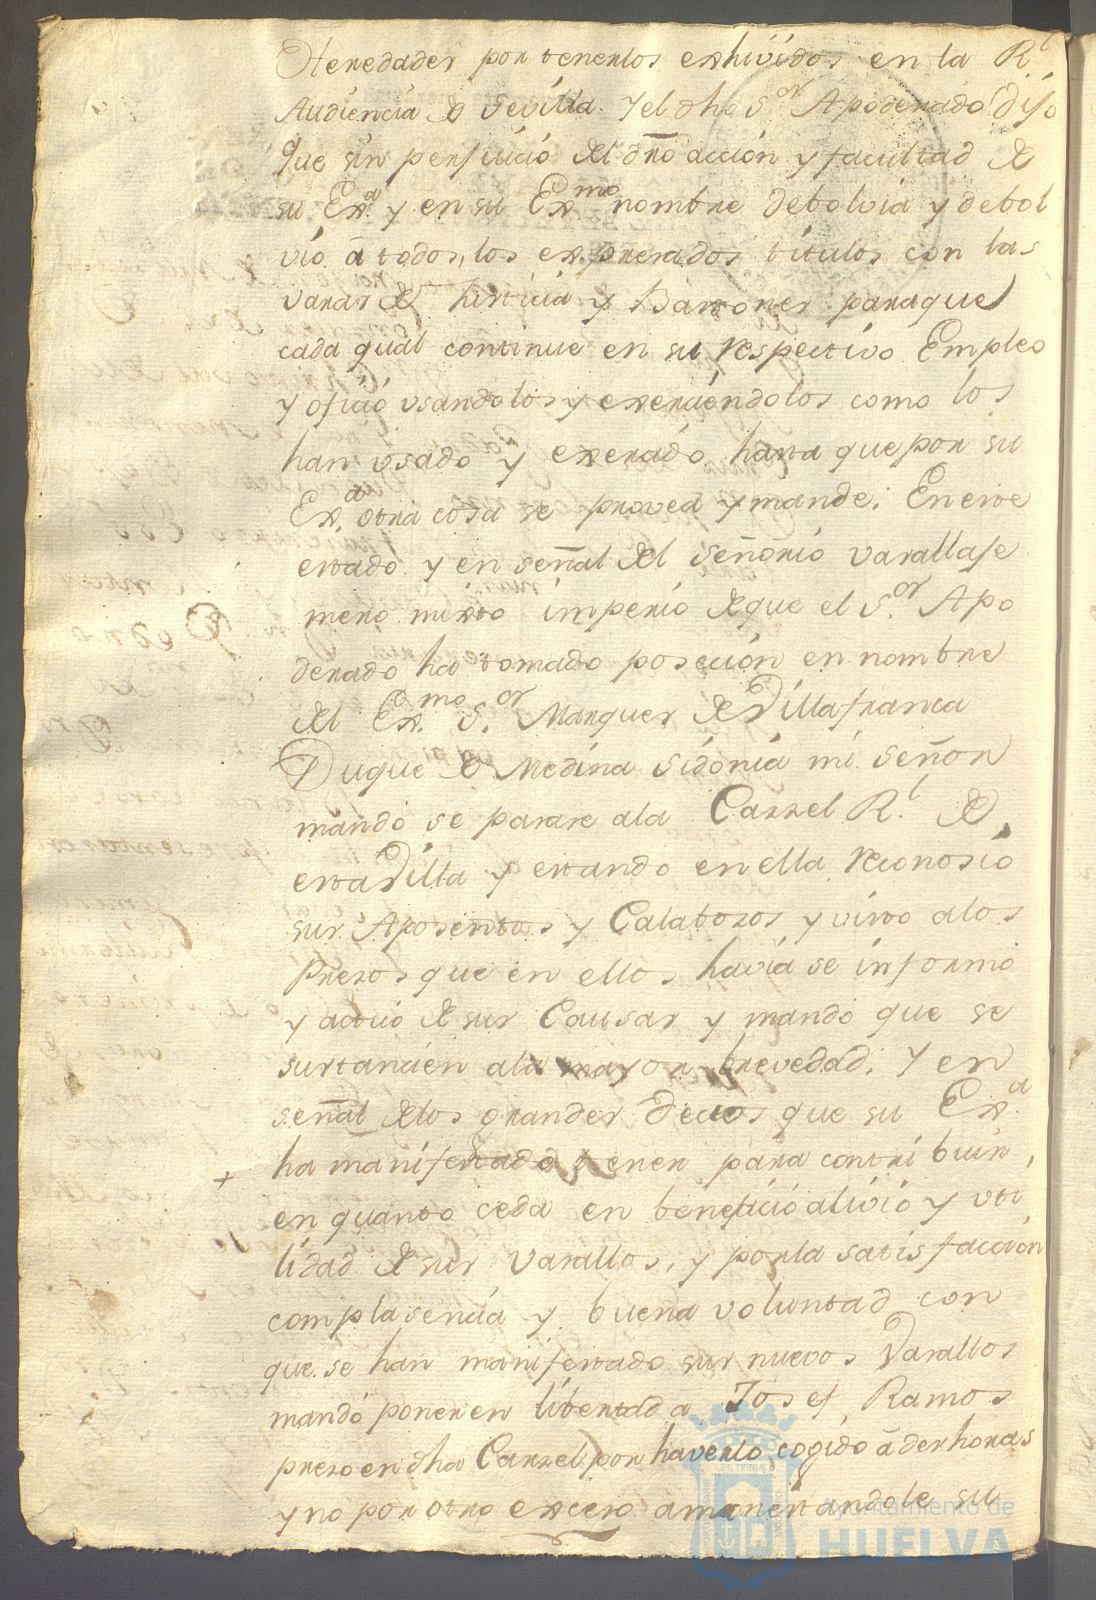 Heredades por tenerlos exhividos en la R.l
Audiencia de Sevilla. Y el dho S.or Apoderado dijo
que sin perjuicio del dro acción y facultad de
su Ex.a y en su Ex.mo nombre debolvia y debol
vio á todos, los expresados titulos con las
varas de Justicia y Bastones para que
cada qual continue en su respectivo Empleo
y oficio usandolos y exerciendolos como los
han usado y exerado, hasta que por su
Ex.a otra cosa se provea y mande. En este
estado y en señal del señorio vasallaje
mero mixto imperio de que el S.or Apo
derado ha tomado poseción en nombre
del Ex.mo S.or Marques de Villafranca
Duque de Medina Sidonia mi señor
mandó se pasase a la Carzel R.l de
esta Villa y estando en ella reconosió
sus Aposentos y Calabosos y visto a los
Presos que en ellos havia se informó
y actuó de sus Causas y mandó que se
surtancien a la mayor brevedad. Y en
señal de los grandes deceos que su Ex.a
+ ha manifestado tener para contribuir,
en quanto ceda en beneficio alivio y uti
lidad de sus vasallos, y por la satisfacción
complasencia y buena voluntad con
que se han manifestado sus nuevos Vasallos
mandó poner en libertad a Josef Ramos
preso en dha Carzel por haverlo cogido á deshoras
y no por otro exceso amonestandole su
Ayuntamiento de
HUELVA